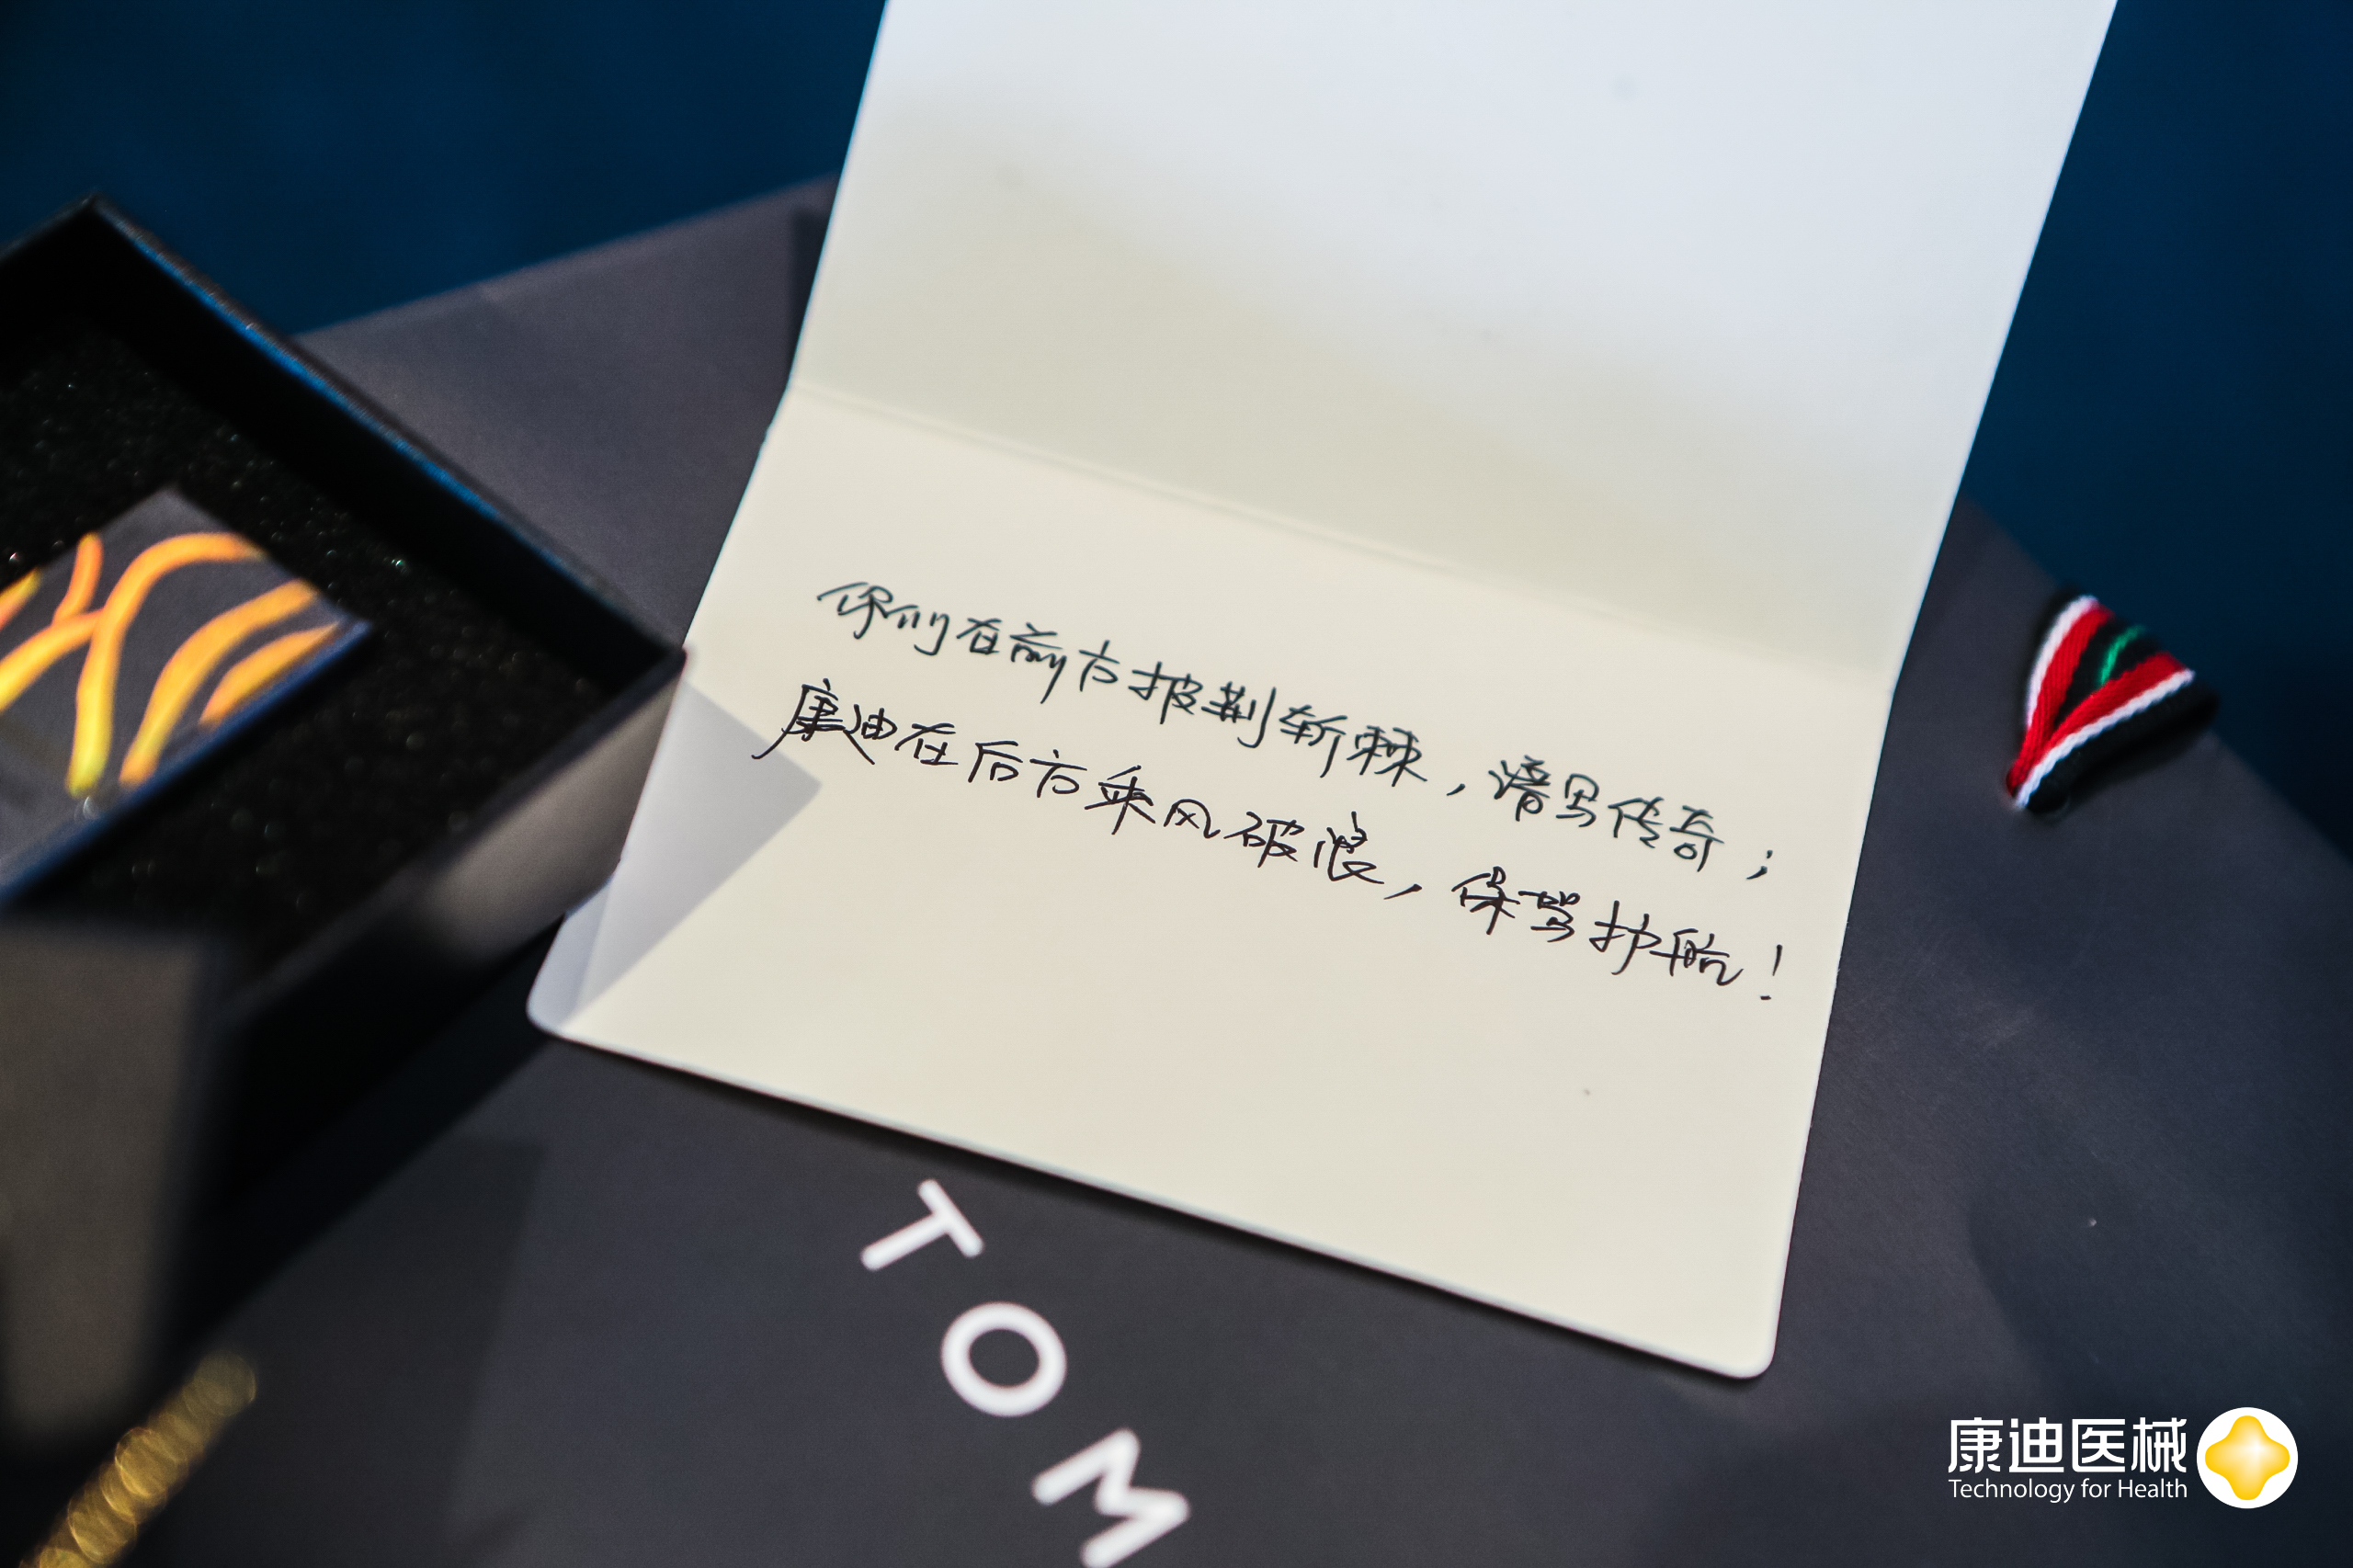 你们在前方披荆斩棘，谱写传奇；
康迪在后方乘风破浪，保驾护航！
TOM
康迪医械
Technology for Health